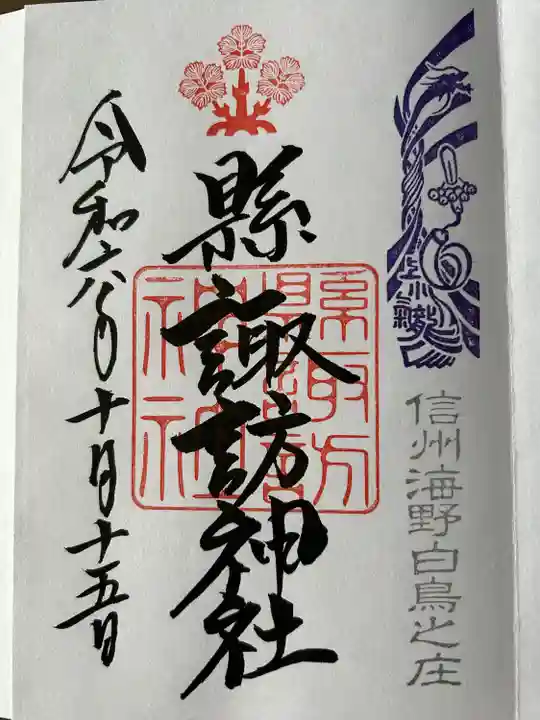 上小三龍
信州海野白鳥之庄
縣諏訪神社
縣諏訪神社
令和六年十月十五日